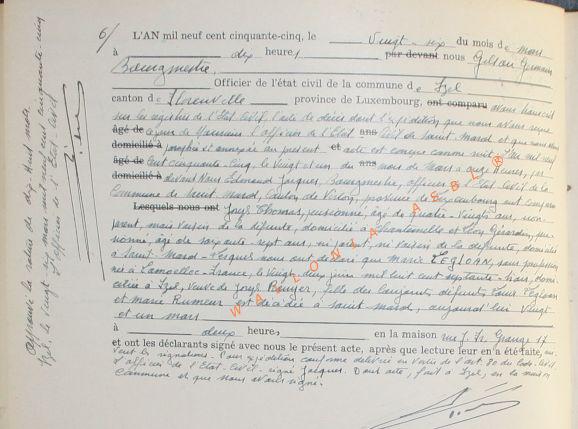 6/ L'AN mil neuf cent cinquante-cinq, le Vingt-six du mois de mars
à dix heures, par devant nous Gilson Germain
Bourgmestre,
Officier de l'état civil de la commune de Izel
canton de Florenville province de Luxembourg, ont comparu avons transcrit
sur les registres de l'Etat Civil l'acte de décès dont l'expédition que nous avons reçue
âgé de ce jour de Monsieur l'officier de l'Etat ans Civil de Saint-Mard et que nous avons
domicilié à paraphé et annexée au présent et acte est conçu comme suit: L'an mil neuf
âgé de cent cinquante-cinq, le vingt et un du ans mois de mars à onze heures, par
domicilié à devant Nous Edmond Jacques, Bourgmestre, officier de l'Etat Civil de la
Commune de Saint Mard, Canton de Virton, province de Luxembourg ont comparu
Lesquels nous ont Joseph Thomas, pensionné, âgé de quatre-vingts ans, non
parent, mais voisin de la défunte, domicilié à Chantemelle et Léon Gérardin, pen-
sionné, âgé de soixante-sept ans, ni parent, ni voisin de la défunte, domicilié
à Saint-Mard. Lesquels nous ont déclaré que Marie TEGLOAN, sans profession
née à France, le vingt deux juin mil huit cent septante-trois, domi-
ciliée à Izel, veuve de Joseph fille des conjoints défunts Louis Tegloan
et Marie Rumeur est décédée à Saint-Mard, aujourd'hui vingt
et un mars
à deux heures, en la maison rue J. Fr. Grange 17
et ont les déclarants signé avec nous le présent acte, après que lecture leur en a été faite,
les signatures. Pour expédition conforme délivrée en vertu de l'art. 80 du Code Civil
L'officier de l'Etat-Civil signé Jacques. Dont acte, fait à Izel, en la maison
commune et que nous avons signé.
Approuvé la rature de dix-huit mots.
Izel, le vingt-six mars mil neuf cent cinquante-cinq
L'officier de l'Etat Civil
WALLONIA ASBL ®